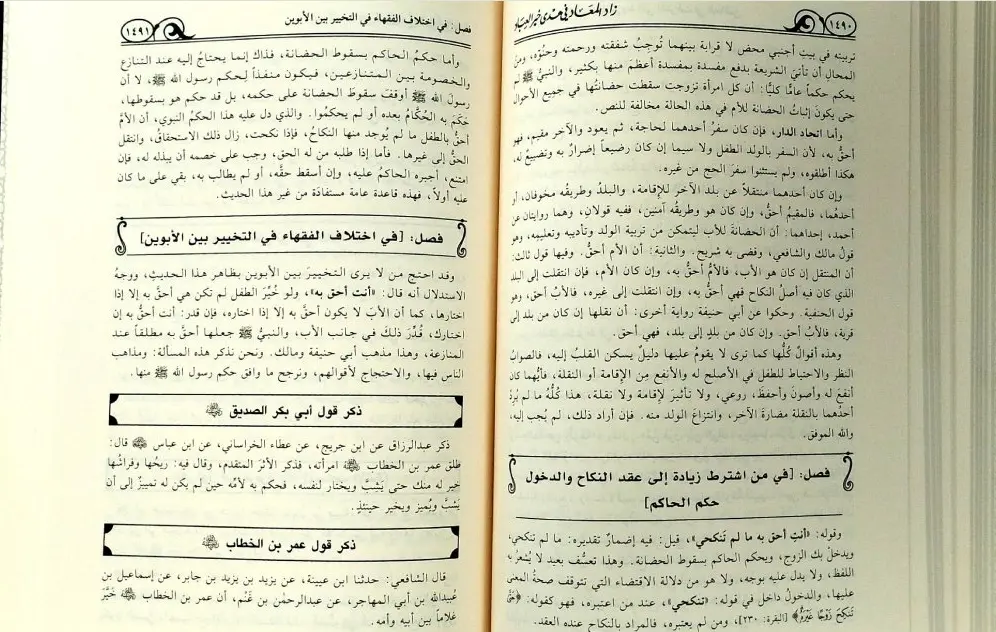 ١٤٩٠
زاد المعاد في هدي خير العباد
تربيته في بيت أجنبي محض لا قرابة بينهما تُوجِبُ شفقته ورحمته وحنُوَّه، ومن
المحال أن تأتيَ الشريعة بدفع مفسدة بمفسدة أعظمَ منها بكثير، والنبيُّ ﷺ لم
يحكم حكماً عامًّا كليًّا: أن كل امرأة تزوجت سقطت حضانتُها في جميع الأحوال
حتى يكونَ إثباتُ الحضانة للأم في هذه الحالة مخالفة للنص.
وأما اتحاد الدار، فإن كان سفرُ أحدهما لحاجة، ثم يعود والآخر مقيم، فهو
أحق به، لأن السفر بالولد الطفل ولا سيما إن كان رضيعاً إضرارٌ به وتضييعٌ له،
هكذا أطلقوه، ولم يستثنوا سفرَ الحج من غيره.
وإن كان أحدهما منتقلاً عن بلد الآخر للإقامة، والبلدُ وطريقُه مخوفان، أو
أحدُهما، فالمقيمُ أحقُّ، وإن كان هو وطريقُه آمنين، ففيه قولان، وهما روايتان عن
أحمد، إحداهما: أن الحضانةَ للأب ليتمكن من تربية الولد وتأديبه وتعليمِه، وهو
قولُ مالك والشافعي، وقضى به شريح. والثانية: أن الأم أحقُّ. وفيها قول ثالث:
أن المنتقل إن كان هو الأب، فالأمُّ أحقُّ به، وإن كان الأم، فإن انتقلت إلى البلد
الذي كان فيه أصلُ النكاح فهي أحقُّ به، وإن انتقلت إلى غيره، فالأبُ أحق، وهو
قول الحنفية. وحكوا عن أبي حنيفة رواية أخرى: أن نقلها إن كان من بلد إلى
قرية، فالأبُ أحق. وإن كان من بلدٍ إلى بلد، فهي أحق.
وهذه أقوالٌ كُلُّها كما ترى لا يقومُ عليها دليلٌ يسكن القلبُ إليه، فالصوابُ
النظر والاحتياط للطفل في الأصلح له والأنفع مِن الإقامة أو النقلة، فأيُّهما كان
أنفعَ له وأصونَ وأحفظَ، روعي، ولا تأثيرَ لإقامة ولا نقلة، هذا كُلُّه ما لم يُرِدْ
أحدُهما بالنقلة مضارةَ الآخر، وانتزاعَ الولد منه. فإن أراد ذلك، لم يُجب إليه،
والله الموفق.
فصل: [في من اشترط زيادة إلى عقد النكاح والدخول
حكم الحاكم]
وقوله: «أنتِ أحق به ما لم تَنكحي»، قيل: فيه إضمارٌ تقديره: ما لم تنكحي،
ويدخلْ بك الزوج، ويحكم الحاكم بسقوط الحضانة. وهذا تعسُّف بعيد لا يُشعرُ به
اللفظ، ولا يدل عليه بوجه، ولا هو من دلالة الاقتضاء التي تتوقف صحةُ المعنى
عليها، والدخولُ داخل في قوله: «تنكحي»، عند من اعتبره، فهو كقوله: ﴿حَتَّىٰ
تَنكِحَ زَوْجًا غَيْرَهُ﴾ [البقرة: ٢٣٠]، ومن لم يعتبره، فالمراد بالنكاح عنده العقد.
فصل: في اختلاف الفقهاء في التخيير بين الأبوين
١٤٩١
وأما حكمُ الحاكم بسقوط الحضانة، فذاك إنما يحتاجُ إليه عند التنازع
والخصومة بين المتنازعين، فيكون منفذاً لِحكم رسول الله ﷺ، لا أن
رسولَ الله ﷺ أوقفَ سقوطَ الحضانة على حكمه، بل قد حكم هو بسقوطها،
حَكَمَ به الحُكَّامُ بعده أو لم يحكموا. والذي دل عليه هذا الحكمُ النبوي، أن الأمَّ
أحقُّ بالطفل ما لم يُوجد منها النكاحُ، فإذا نكحت، زال ذلك الاستحقاقُ، وانتقل
الحقُّ إلى غيرها. فأما إذا طلبه من له الحق، وجب على خصمه أن يبذله له، فإن
امتنع، أجبره الحاكمُ عليه، وإن أسقط حقَّه، أو لم يطالب به، بقي على ما كان
عليه أولاً، فهذه قاعدة عامة مستفادة من غير هذا الحديث.
فصل: [في اختلاف الفقهاء في التخيير بين الأبوين]
وقد احتج من لا يرى التخييرَ بين الأبوين بظاهر هذا الحديثِ، ووجهُ
الاستدلال أنه قال: «أنت أحق به»، ولو خُيِّرَ الطفل لم تكن هي أحقَّ به إلا إذا
اختارها، كما أن الأبَ لا يكون أحقَّ به إلا إذا اختاره، فإن قدر: أنت أحقُّ به إن
اختارك، قُدِّرَ ذلكَ في جانب الأب، والنبيُّ ﷺ جعلها أحقَّ به مطلقاً عند
المنازعة، وهذا مذهب أبي حنيفة ومالك. ونحن نذكر هذه المسألة: ومذاهب
الناس فيها، والاحتجاج لأقوالهم، ونرجح ما وافق حكم رسول الله ﷺ منها.
ذكر قول أبي بكر الصديق رضي الله عنه
ذكر عبدالرزاق عن ابن جريج، عن عطاء الخراساني، عن ابن عباس رضي الله عنه قال:
طلق عمر بن الخطاب رضي الله عنه امرأته، فذكر الأثر المتقدم، وقال فيه: ريحُها وفراشُها
خير له منك حتى يَشِبَّ ويختار لنفسه، فحكم به لأمه حين لم يكن له تمييزٌ إلى أن
يَشبَّ ويُميز ويخير حينئذٍ.
ذكر قول عمر بن الخطاب رضي الله عنه
قال الشافعي: حدثنا ابن عيينة، عن يزيد بن يزيد بن جابر، عن إسماعيل بن
عُبيدالله بن أبي المهاجر، عن عبدالرحمٰن بن غَنْمٍ، أن عمر بن الخطاب رضي الله عنه خَيَّرَ
غلاماً بين أبيه وأمه.